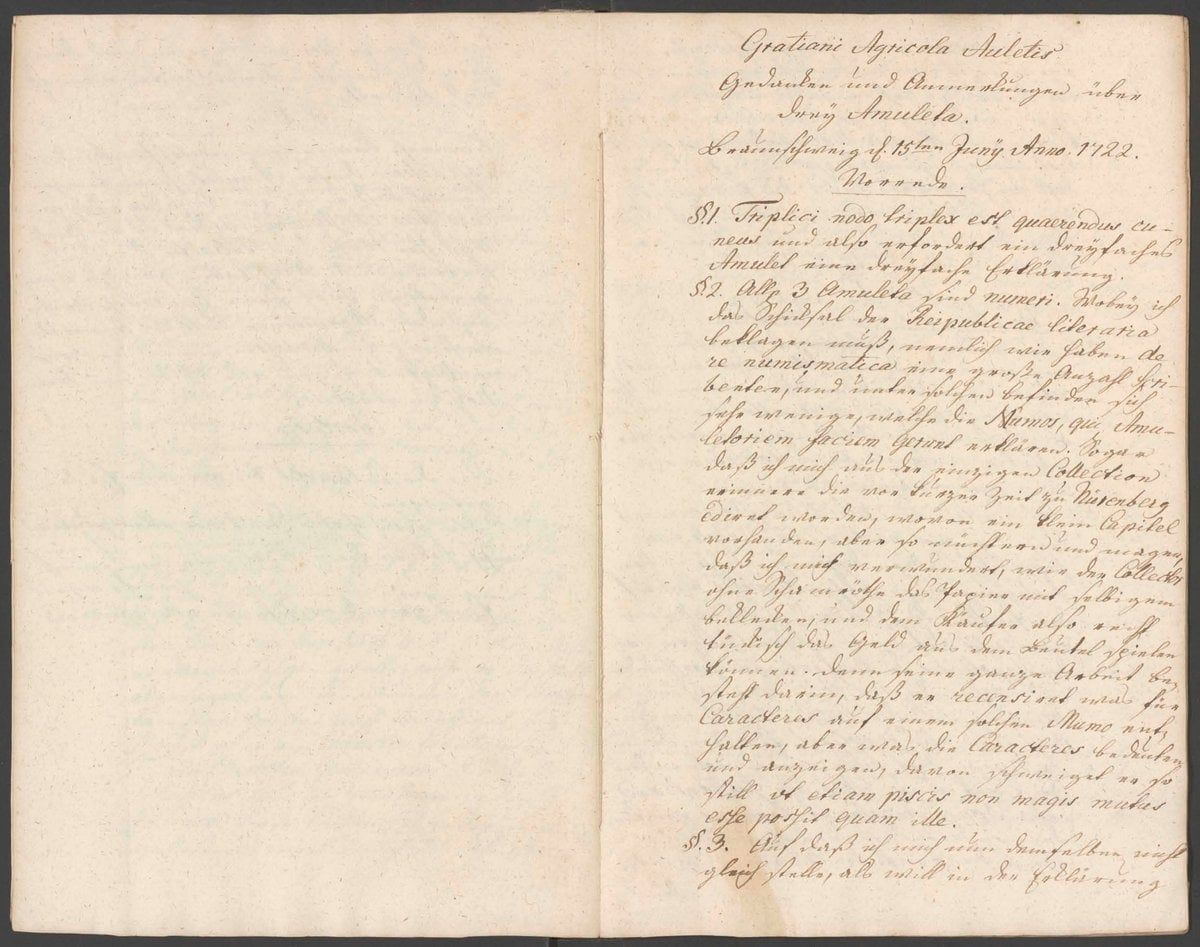 Gratiani Agricola Auletis
Gedanken und Anmerkungen über
drey Amuleta.
Braunschweig d. 15ten Juny Anno. 1722.
Vorrede.
§.1. Triplici nodo triplex est quaerendus cu-
neus und also erfordert ein dreyfaches
Amulet eine dreyfache Erklärung.
§.2. Alle 3 Amuleta sind numeri. Wobey ich
das Schicksal der Reipublicae literaria
beklagen muß, nemlich wir haben de
re numismatica eine große Anzahl Scri-
benten, und unter solchen befinden sich
sehr wenige, welche die Numos, qui Amu-
letoriem faciem gerunt erklären. Sogar
daß ich mich aus der einzigen Collection
erinnere die vor kurzer Zeit zu Nürenberg
ediret worden, worvon ein klein Capitel
vorhanden, aber so nüchtern und mager,
daß ich mich verwundert, wie der Collector
ohne Schamröthe das Papier mit selbigem
beklecken, und dem Käufer also recht
tückisch das Geld aus dem Beutel spielen
können. Denn seine ganze Arbeit be-
steht darin, daß er recensiret was für
Caracteres auf einem solchen Numo ent-
halten, aber was die Caracteres bedeuten
und anzeigen, davon schweiget er so
still ut etiam piscis non magis mutus
esse possit quam ille.
§.3. Auf daß ich mich nun demselben nicht
gleich stelle, als will in der Erklärung